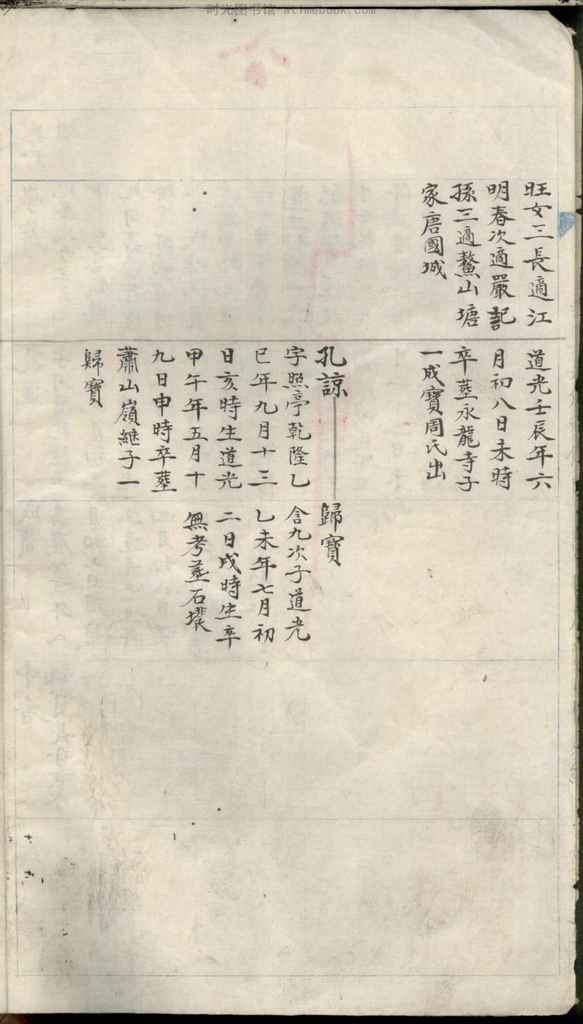 时光图书馆 atimebook.com
旺女三長適江
明春次適嚴記
孫三適鰲山塘
家唐國城
道光壬辰年六
月初八日未時
卒塟永龍寺子
一成寶周氏出
孔諒
字照亭乾隆乙
巳年九月十三
日亥時生道光
甲午年五月十
九日申時卒塟
蕭山嶺継子一
歸寶
歸寶
含九次子道光
乙未年七月初
二日戌時生卒
無考塟石壋